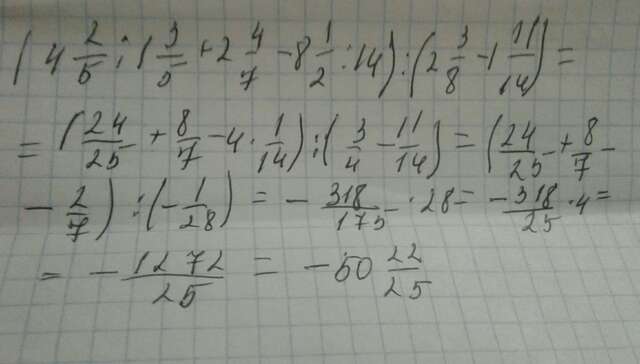 ( 4 2/5 : 1 3/5 + 2 4/7 - 8 1/2 : 14 ) : ( 2 3/8 - 1 11/14 ) =
= ( 24/25 + 8/7 - 4 · 1/14 ) : ( 3/4 - 11/14 ) = ( 24/25 + 8/7 -
- 2/7 ) : ( - 1/28 ) = - 318/175 · 28 = - 318/25 · 4 =
= - 1272/25 = - 50 22/25